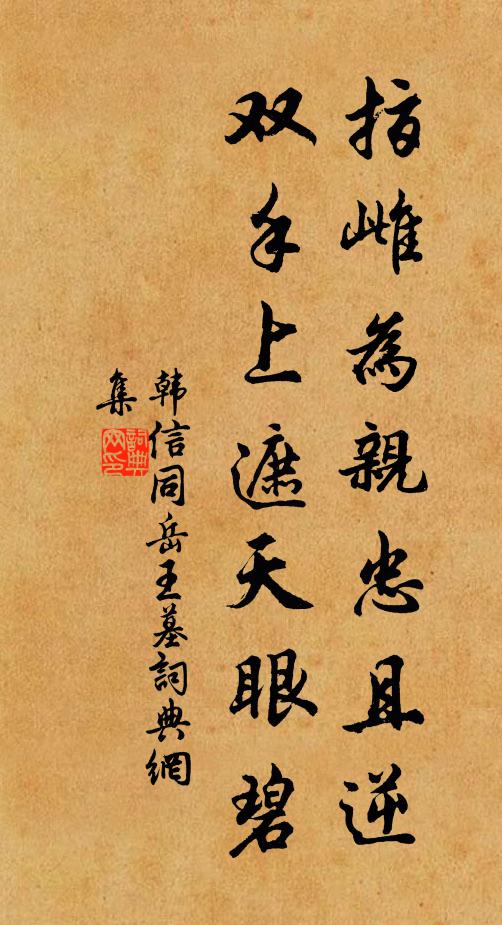 指雌為親忠且逆
双手上遮天眼碧
韩信同岳王墓詞典網
集
詞典网印